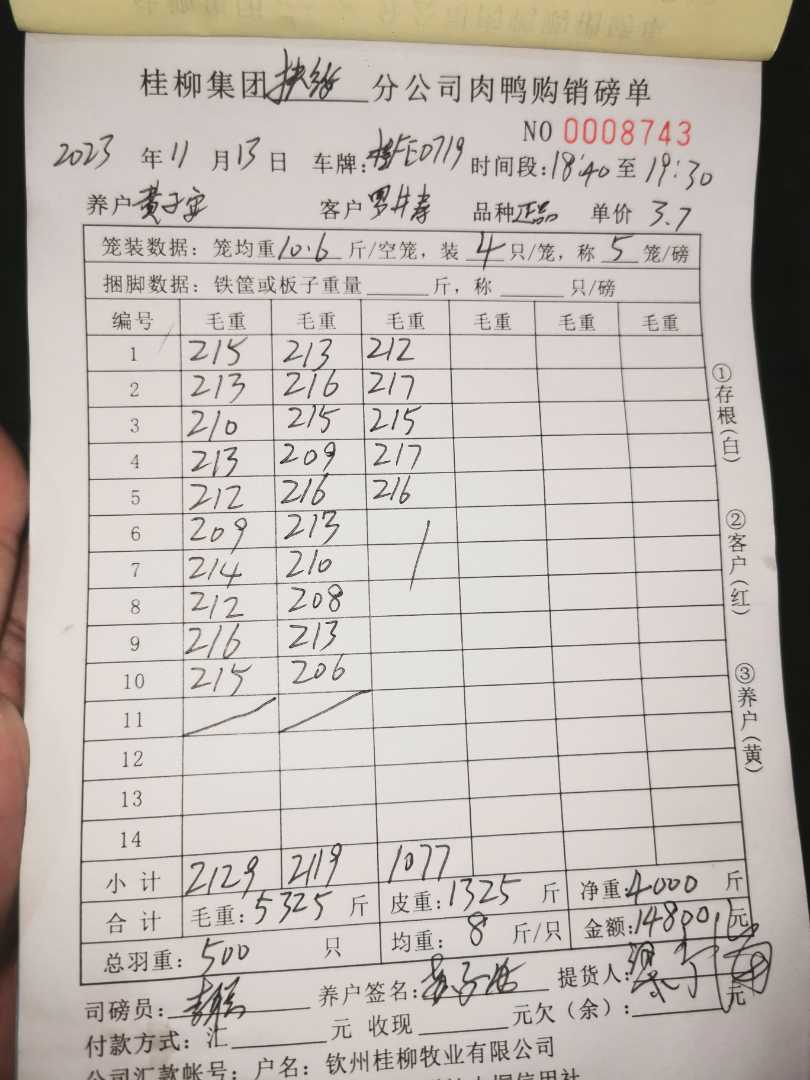 桂柳集团 分公司肉鸭购销磅单
NO 0008743
2023年11月13日 车牌:桂FE0719 时间段:18:40至19:30
养户 黄子 客户 罗 寿 品种 正品 单价 3.7
笼装数据:笼均重10.6斤/空笼,装4只/笼,称5笼/磅
捆脚数据:铁筐或板子重量____斤,称____只/磅
编号 毛重 毛重 毛重 毛重 毛重 毛重
1 215 213 212
2 213 216 217
3 210 215 215
4 213 209 217
5 212 216 216
6 209 213
7 214 210
8 212 208
9 216 213
10 215 206
11
12
13
14
小计 2129 2119 1077
合计 毛重:5325斤 皮重:1325斤 净重:4000斤
总羽重:500只 均重:8斤/只 金额:14800元
司磅员: 养户签名: 提货人:
付款方式:汇____元 收现____元欠(余):____元
公司汇款帐号:户名:钦州桂柳牧业有限公司
①存根(白)
②客户(红)
③养户(黄)